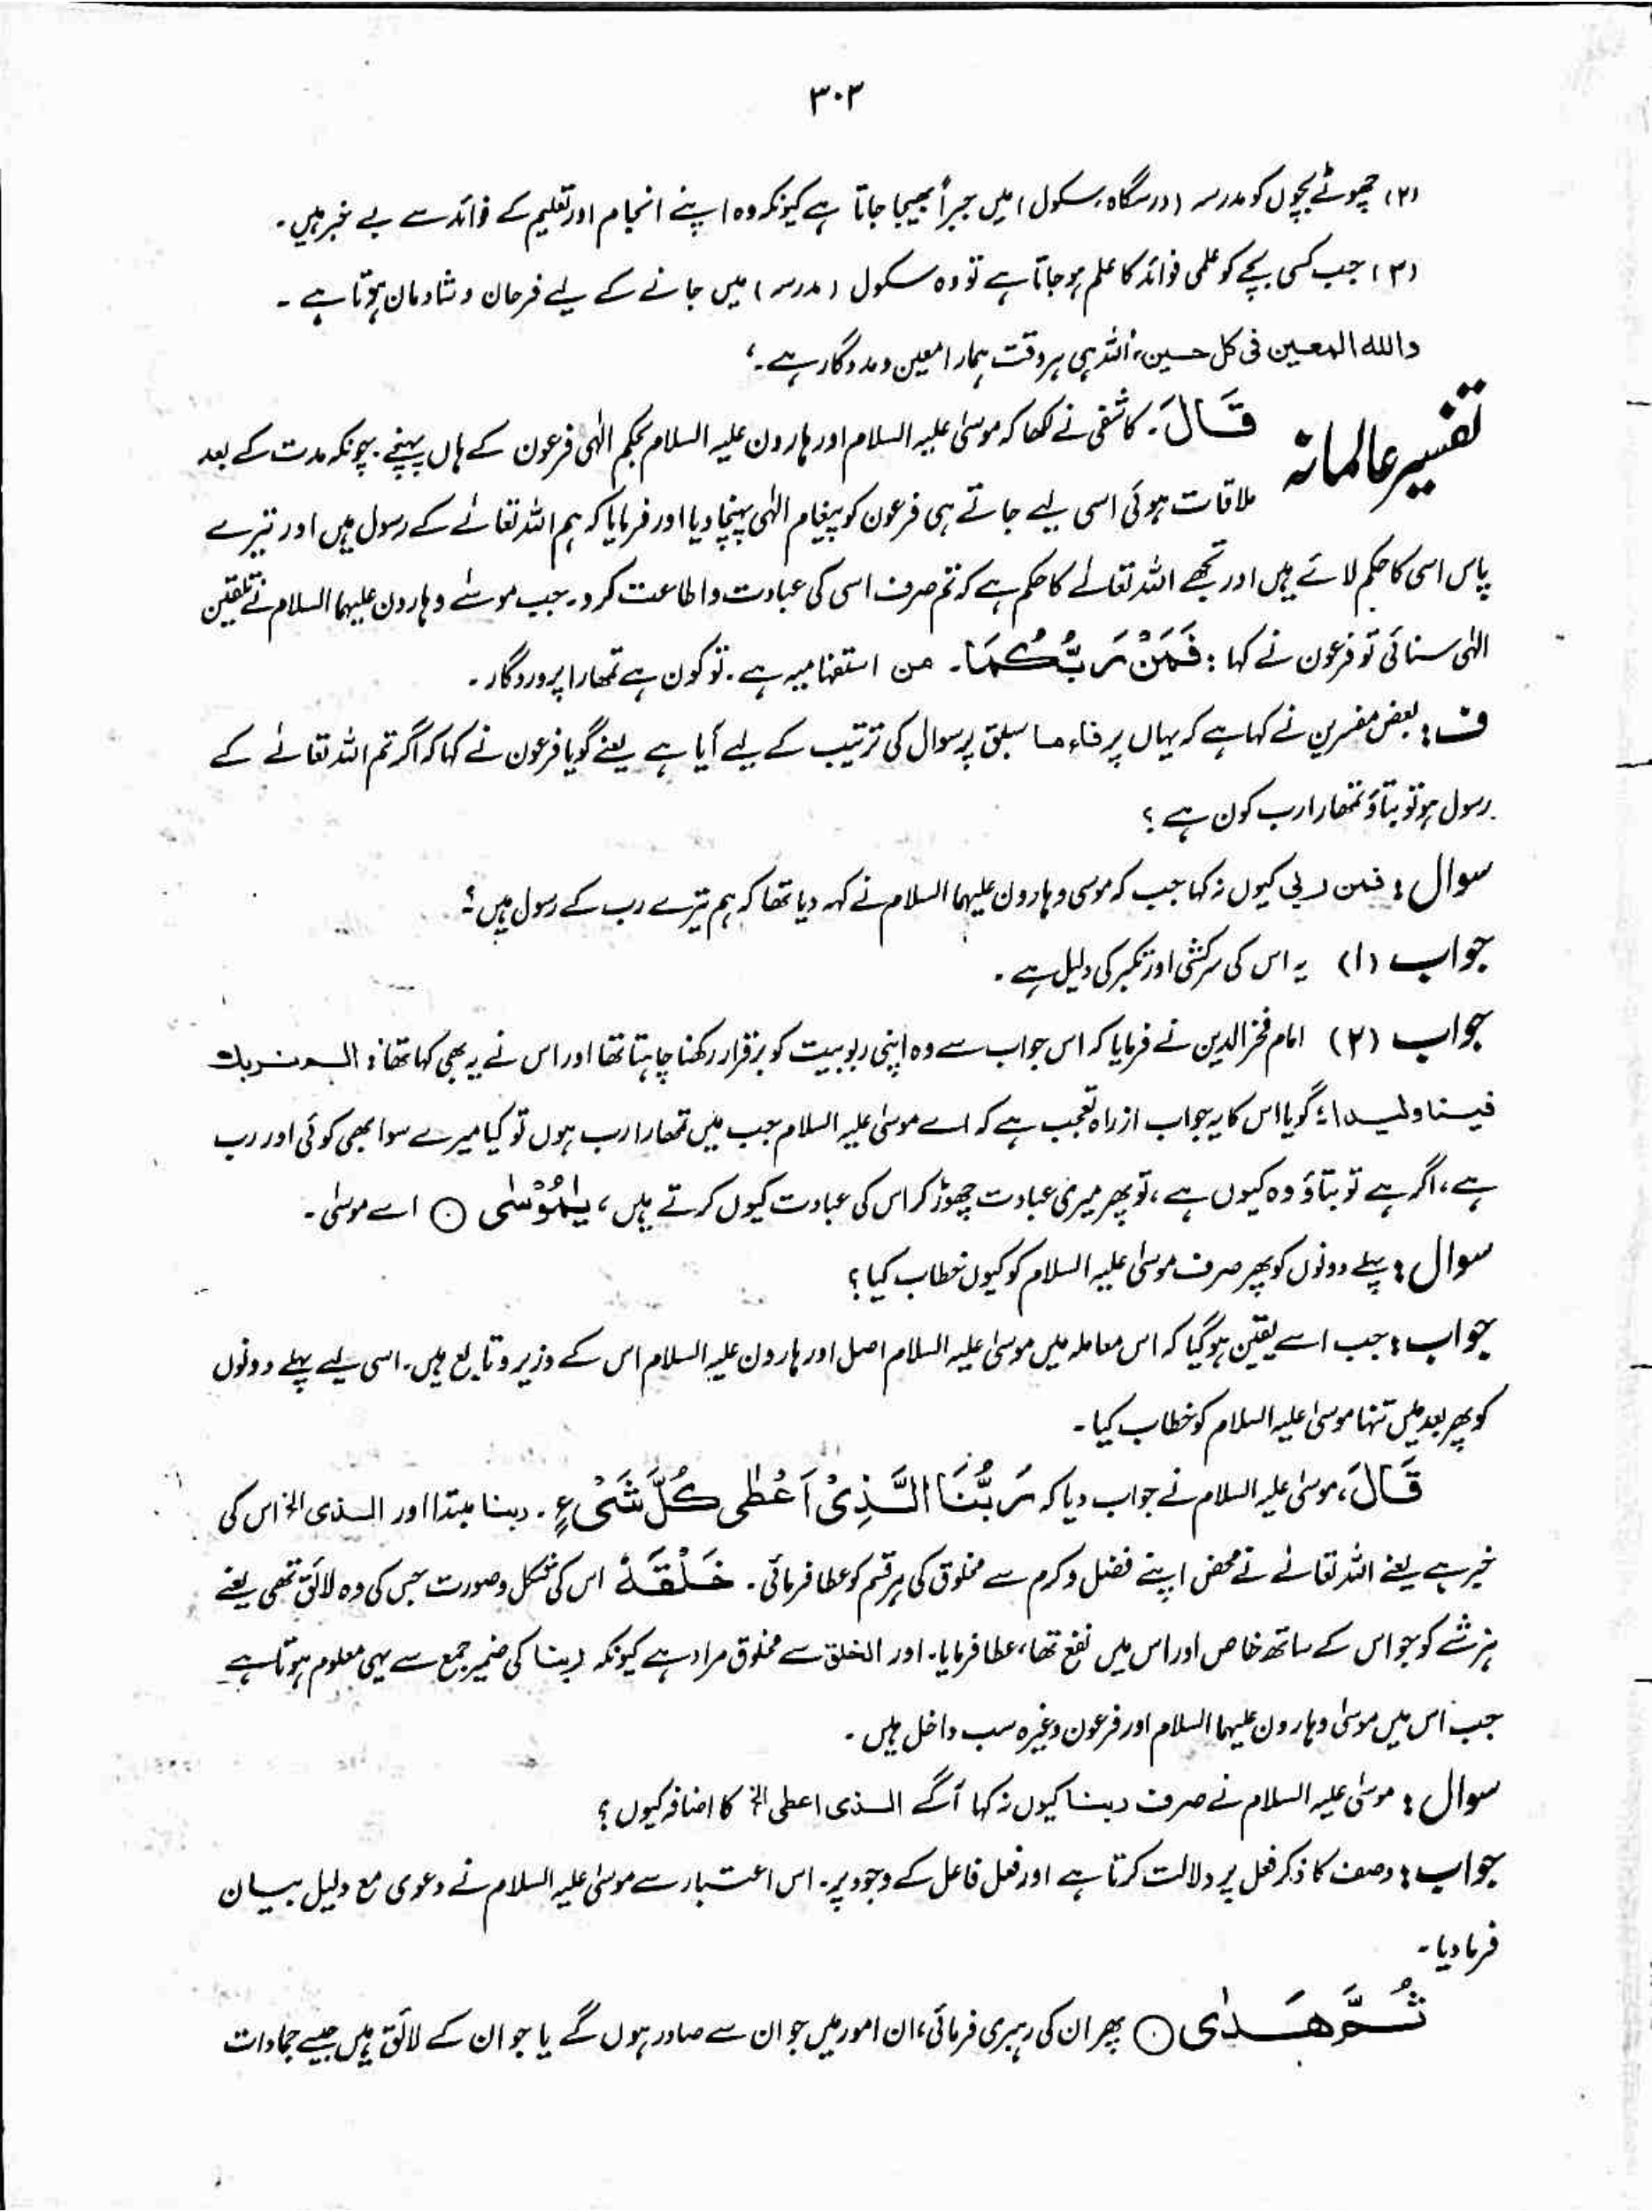 ۳۰۳
(۲) چھوٹے بچوں کو مدرسہ (درسگاہ، سکول) میں جبراً بھیجا جاتا ہے کیونکہ وہ اپنے انجام اور تعلیم کے فوائد سے بے خبر ہیں۔
(۳) جب کسی بچے کو علمی فوائد کا علم ہو جاتا ہے تو وہ سکول (مدرسہ) میں جانے کے لیے فرحان و شادمان ہوتا ہے۔
واللہ المعین فی کل حسین، اللہ ہی ہر وقت ہمارا معین و مددگار ہے۔
تفسیر عالمانہ
قَالَ۔ کاشفی نے لکھا کہ موسیٰ علیہ السلام اور ہارون علیہ السلام بحکم الٰہی فرعون کے ہاں پہنچے۔ چونکہ مدت کے بعد
ملاقات ہوئی اسی لیے جاتے ہی فرعون کو پیغام الٰہی پہنچا دیا اور فرمایا کہ ہم اللہ تعالےٰ کے رسول ہیں اور تیرے
پاس اسی کا حکم لائے ہیں اور تجھے اللہ تعالےٰ کا حکم ہے کہ تم صرف اسی کی عبادت و اطاعت کرو۔ جب موسےٰ و ہارون علیہما السلام نے تلقین
الٰہی سنائی تو فرعون نے کہا : فَمَنْ رَبُّكُمَا۔ من استفہامیہ ہے۔ تو کون ہے تمھارا پروردگار۔
ف : بعض مفسرین نے کہا ہے کہ یہاں پر فاء ما سبق پر سوال کی ترتیب کے لیے آیا ہے یعنے گویا فرعون نے کہا کہ اگر تم اللہ تعالےٰ کے
رسول ہو تو بتاؤ تمھارا رب کون ہے ؟
سوال : فمن ربی کیوں نہ کہا جب کہ موسی و ہارون علیہما السلام نے کہہ دیا تھا کہ ہم تیرے رب کے رسول ہیں ؟
جواب (۱) یہ اس کی سرکشی اور تکبر کی دلیل ہے۔
جواب (۲) امام فخر الدین نے فرمایا کہ اس جواب سے وہ اپنی ربوبیت کو برقرار رکھنا چاہتا تھا اور اس نے یہ بھی کہا تھا : الم نربك
فینا ولیدا ؛ گویا اس کا یہ جواب از راہ تعجب ہے کہ اے موسیٰ علیہ السلام جب میں تمھارا رب ہوں تو کیا میرے سوا بھی کوئی اور رب
ہے، اگر ہے تو بتاؤ وہ کیوں ہے، تو پھر میری عبادت چھوڑ کر اس کی عبادت کیوں کرتے ہیں، یٰمُوْسٰی ○ اے موسیٰ۔
سوال : پہلے دونوں کو پھر صرف موسیٰ علیہ السلام کو کیوں خطاب کیا ؟
جواب : جب اسے یقین ہو گیا کہ اس معاملہ میں موسیٰ علیہ السلام اصل اور ہارون علیہ السلام اس کے وزیر و تابع ہیں۔ اسی لیے پہلے دونوں
کو پھر بعد میں تنہا موسیٰ علیہ السلام کو خطاب کیا۔
قَالَ، موسیٰ علیہ السلام نے جواب دیا کہ رَبُّنَا الَّذِیْ اَعْطٰی كُلَّ شَیْءٍ۔ ربنا مبتدا اور الذی الخ اس کی
خبر ہے یعنے اللہ تعالےٰ نے محض اپنے فضل و کرم سے مخلوق کی ہر قسم کو عطا فرمائی۔ خَلْقَهٗ اس کی شکل و صورت جس کی وہ لائق تھی یعنے
ہر شے کو جو اس کے ساتھ خاص اور اس میں نفع تھا، عطا فرمایا۔ اور الخلق سے مخلوق مراد ہے کیونکہ ربنا کی ضمیر جمع سے یہی معلوم ہوتا ہے
جب اس میں موسیٰ و ہارون علیہما السلام اور فرعون وغیرہ سب داخل ہیں۔
سوال : موسیٰ علیہ السلام نے صرف ربنا کیوں نہ کہا آگے الذی اعطی الخ کا اضافہ کیوں ؟
جواب : وصف کا ذکر فعل پر دلالت کرتا ہے اور فعل فاعل کے وجود پر۔ اس اعتبار سے موسیٰ علیہ السلام نے دعوی مع دلیل بیان
فرما دیا۔
ثُمَّ هَدٰی ○ پھر ان کی رہبری فرمائی، ان امور میں جو ان سے صادر ہوں گے یا جو ان کے لائق ہیں جیسے جمادات